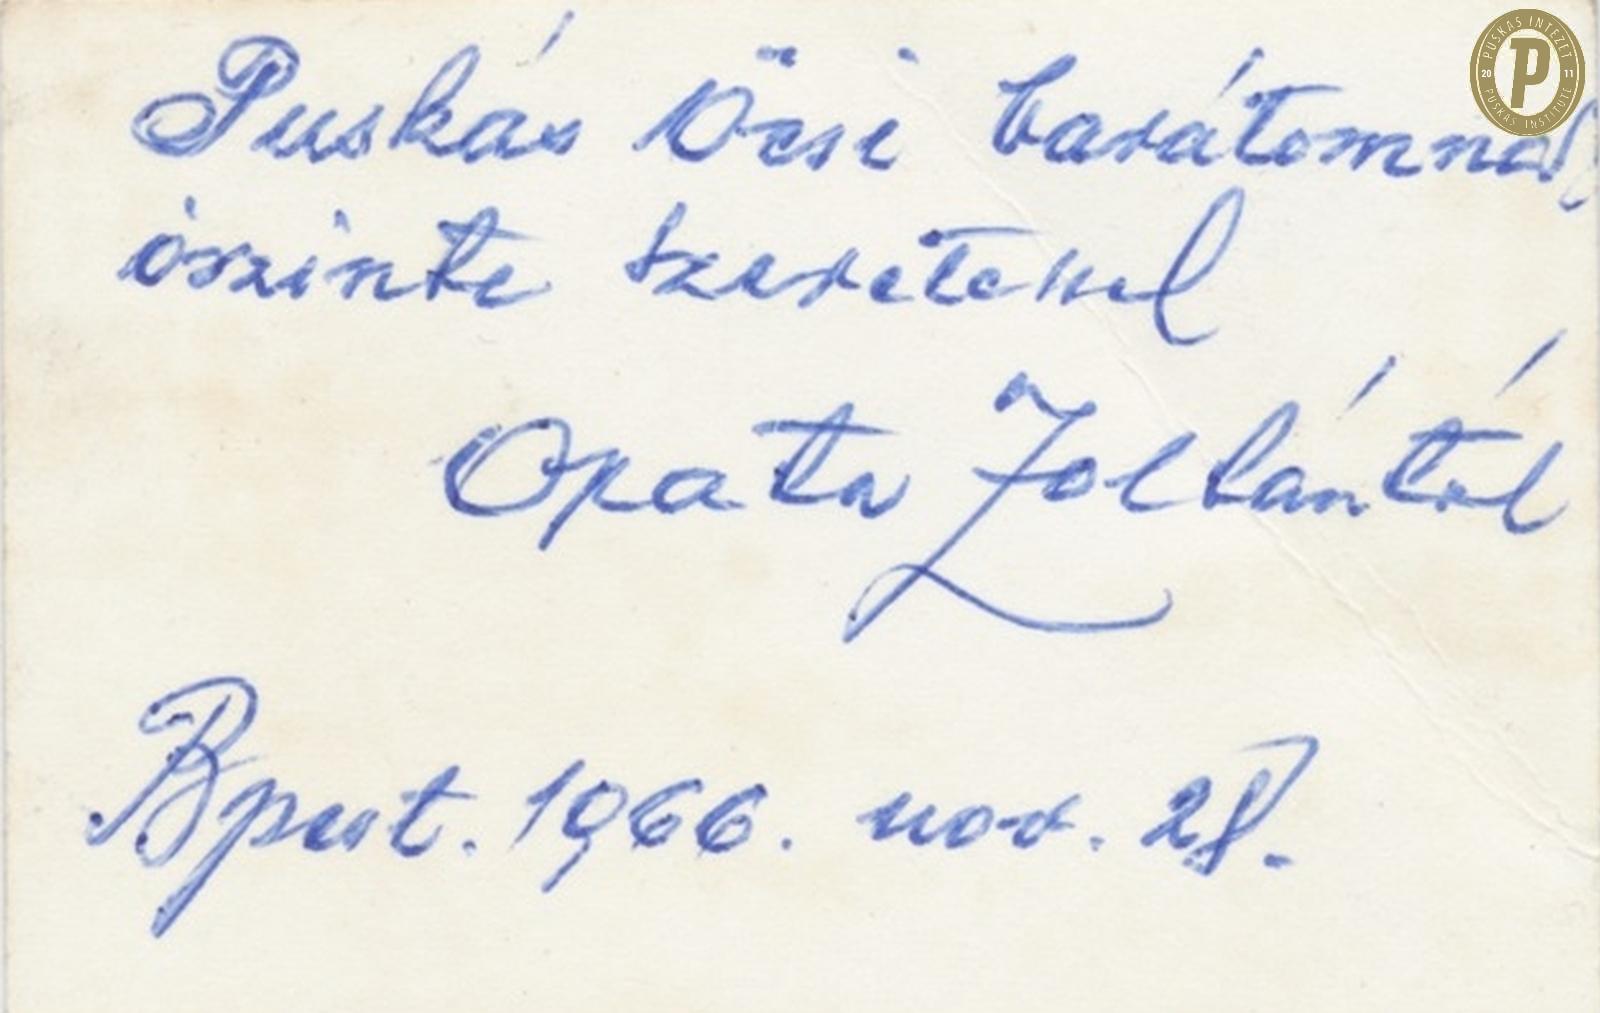 Puskás Öcsi barátomnak
őszinte szeretettel
Opata Zoltántól
Bpest. 1966. nov. 28.
PUSKÁS INTÉZET
20 P 11
PUSKÁS INSTITUTE